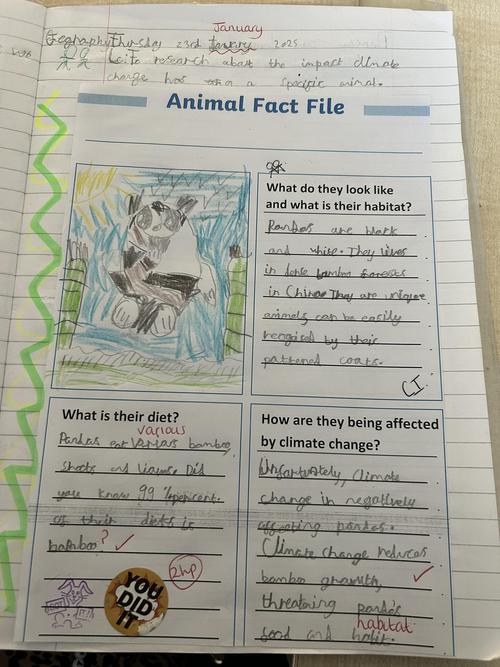 January
Geography Thursday 23rd January 2025
L.C: To research about the impact climate
change has on a specific animal.
Animal Fact File
What do they look like
and what is their habitat?
Pandas are black
and white. They lives
in dense bamboo forests
in China They are unique
animals can be easily
by their
pattened coats.
CI
What is their diet?
various
Pandas eat various bamboo
shoots and Did
you know 99 % percent
of their diets is
bamboo? ✓
2hp
YOU
DID
IT
How are they being affected
by climate change?
Unfortunately, Climate
change in negatively
affecting pandas.
Climate change reduces
bamboo growth, ✓
threatning panda's
habitat
food and habit.